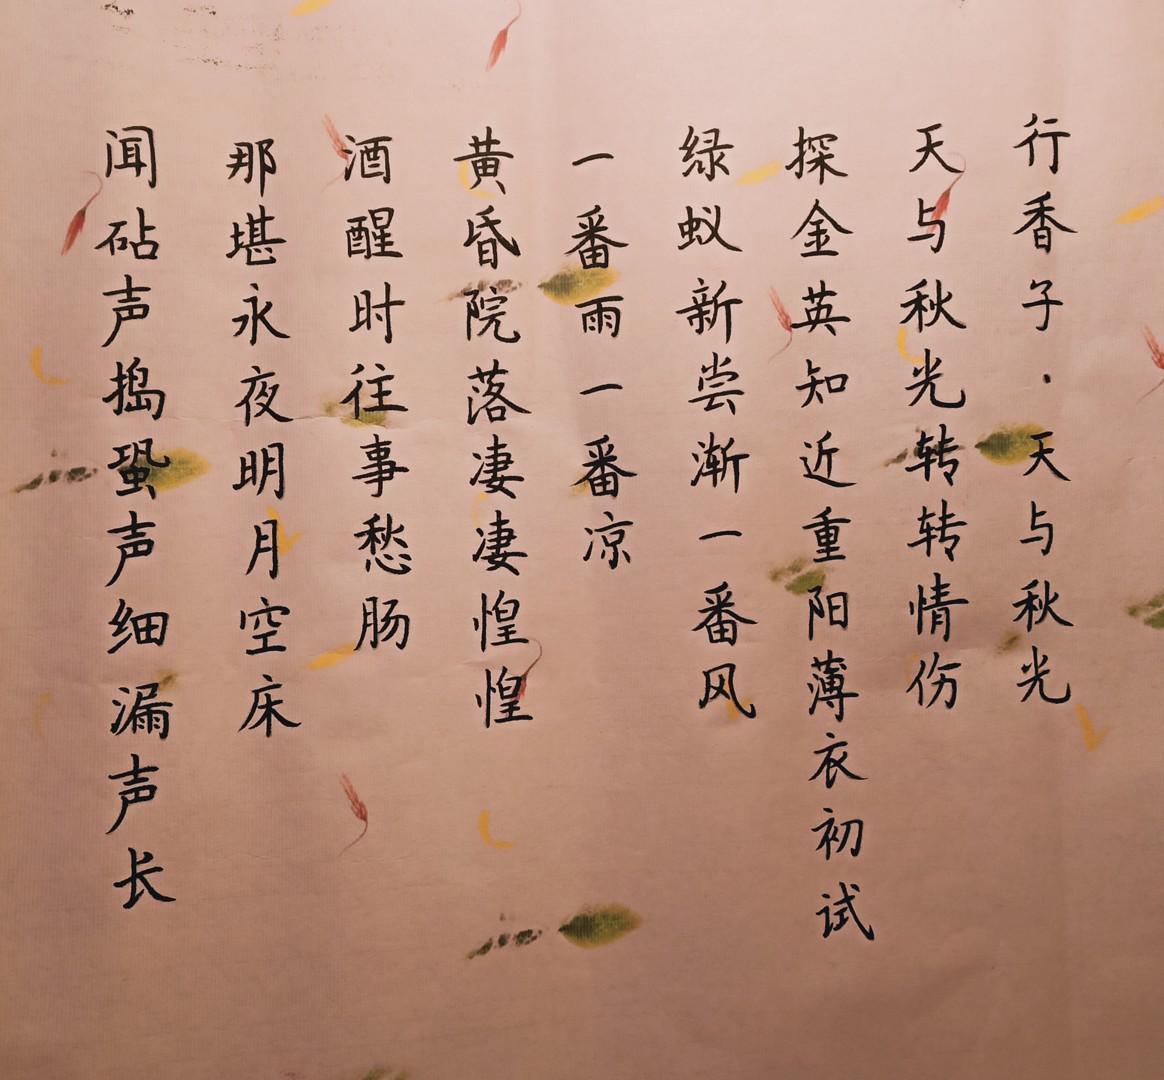 行香子·天与秋光
天与秋光转转情伤
探金英知近重阳薄衣初试
绿蚁新尝渐一番风
一番雨一番凉
黄昏院落凄凄惶惶
酒醒时往事愁肠
那堪永夜明月空床
闻砧声捣蛩声细漏声长